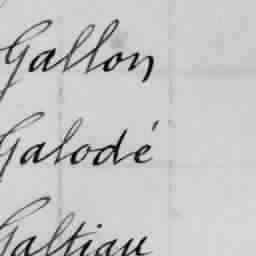 Gallon
Galodé
Galtiau